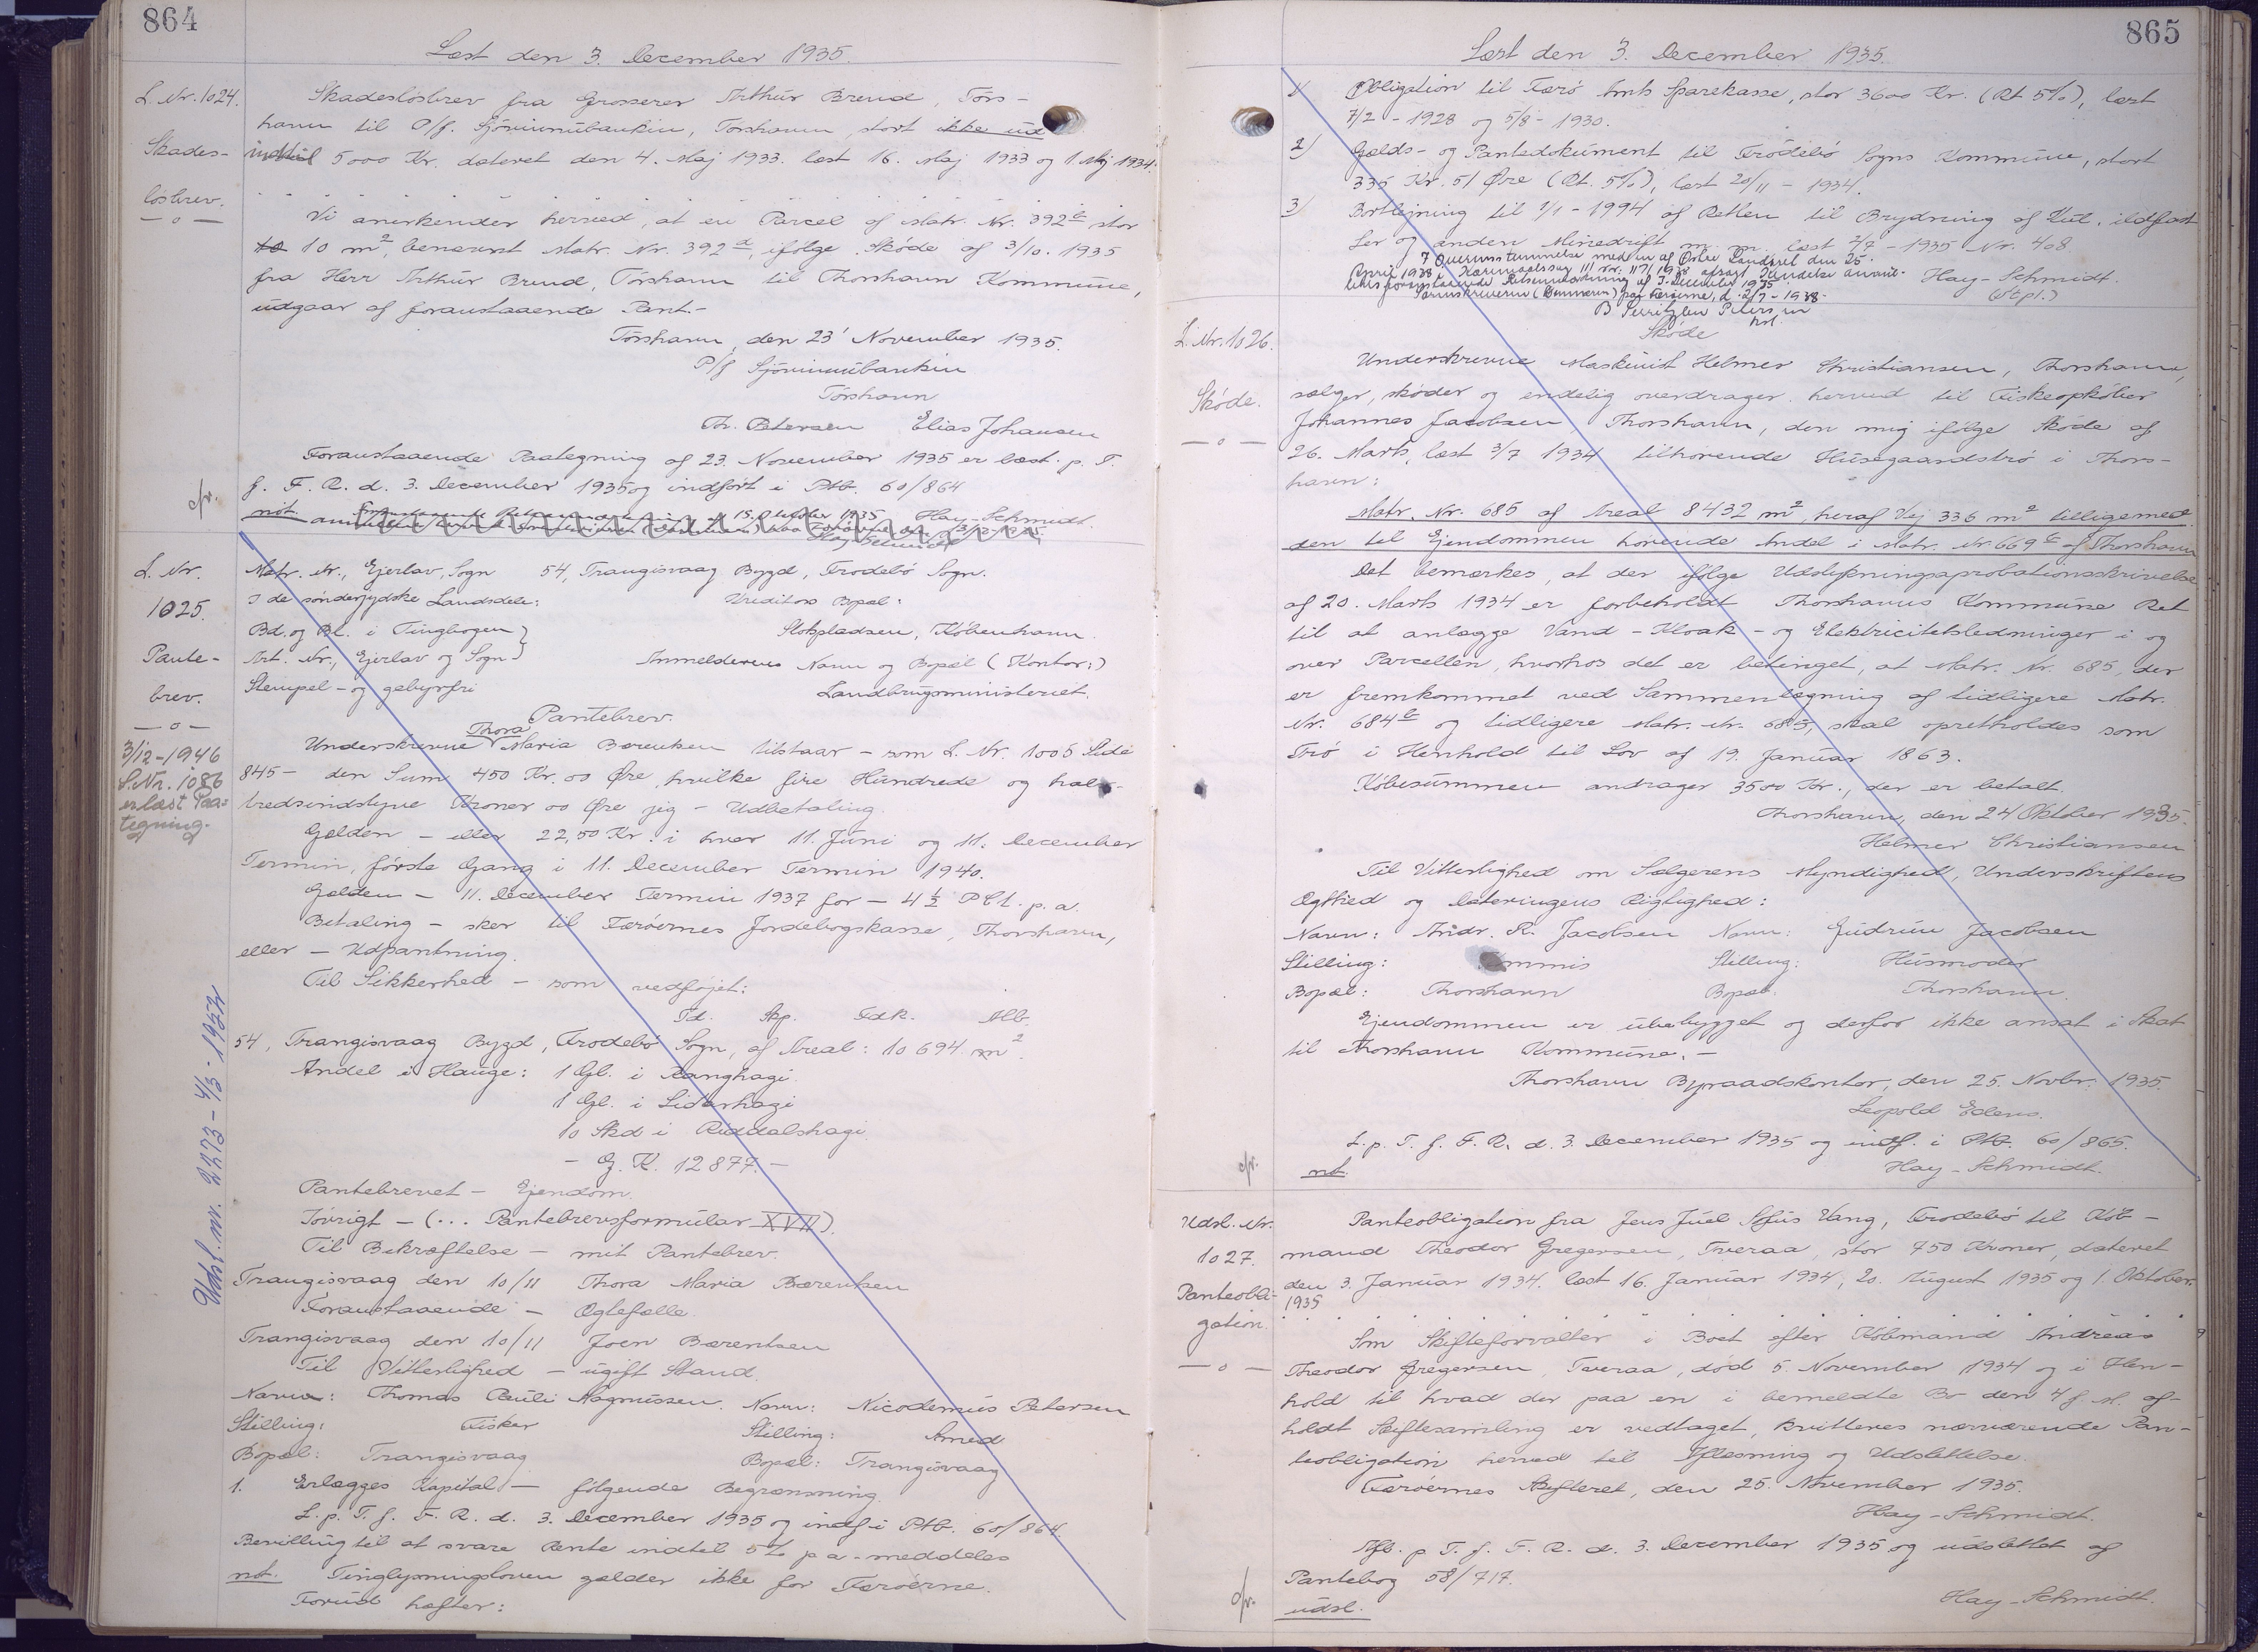 864
Læst den 3. December 1935.
L. Nr. 1024.
Skades-
løsbrev.
— o —
Skadesløsbrev fra Grosserer Arthur Brend, Tórs-
havn til P/f. Sjóvinnubankin, Tórshavn, stort ikke ud
indtil 5000 Kr. dateret den 4. Maj 1933. læst 16. Maj 1933 og 1. Maj 1934.
Vi anerkender herved, at en Parcel af Matr. Nr. 392 c stor
10 10 m², benævnt Matr. Nr. 392 d, ifølge Skøde af 3/10. 1935
fra Herr Arthur Brend, Tórshavn til Thorshavn Kommune,
udgaar af foranstaaende Pant.-
Tórshavn, den 23' November 1935.
P/f Sjóvinnubankin
Tórshavn
Th. Petersen Elias Johansen
Foranstaaende Paategning af 23. November 1935 er læst p. T.
f. F. R. d. 3. December 1935 og indført i Ptb. 60/864
not. Hay-Schmidt.
L. Nr.
1025.
Pante-
brev.
— o —
3/12-1946
L.Nr. 1086
er læst Paa-
tegning.
Udsl. nr. 2273 - 4/3 - 1952
Matr. Nr., Ejerlav, Sogn 54, Trangisvaag Bygd, Frodebø Sogn.
I de sønderjydske Landsdele: Kreditors Bopæl:
Bd. og Bl. i Tingbogen } Slotspladsen, København.
Art. Nr., Ejerlav og Sogn } Anmelderens Navn og Bopæl (Kontor:)
Stempel- og gebyrfri Landbrugsministeriet.
Pantebrev.
Thora
Underskrevne Maria Bærentsen tilstaar - som L. Nr. 1006 Side
845 - den Sum 450 Kr. 00 Øre, hvilke fire Hundrede og halv-
tredsindstyve Kroner 00 Øre jeg - Udbetaling.
Gælden - eller 22,50 Kr. i hver 11. Juni og 11. December
Termin, første Gang i 11. December Termin 1940.
Gælden - 11. December Termin 1937 for - 4½ PCt. p. a.
Betaling - sker til Færøernes Jordebogskasse, Thorshavn,
eller - Udpantning.
Til Sikkerhed - som vedføjet:
Td. Skp. Fdk. Alb.
54, Trangisvaag Bygd, Frodebø Sogn, af Areal: 10 694 m².
Andel i Hauge: 1 Gl. i Ranghagi.
1 Gl. i Lidarhagi
10 Skd i Riddalshagi.
- G. K. 12877. -
Pantebrevet - Ejendom.
Iøvrigt - (... Pantebrevsformular XVII).
Til Bekræftelse - mit Pantebrev.
Trangisvaag den 10/11 Thora Maria Bærentsen
Foranstaaende - Ægtefælle.
Trangisvaag den 10/11 Joen Bærentsen
Til Vitterlighed - ugift Stand.
Navn: Thomas Pauli Magnussen. Navn: Nicodemus Petersen
Stilling: Fisker Stilling: Smed
Bopæl: Trangisvaag Bopæl: Trangisvaag
1. Erlægges Kapital - følgende Begrænsning.
L. p. T. f. F. R. d. 3. December 1935 og indf. i Ptb. 60/864.
Bevilling til at svare Rente indtil 5 % p a. meddeles
not. Tinglysningsloven gælder ikke for Færøerne.
Forud hæfter:
865
Læst den 3. December 1935.
1) Obligation til Færø Amts Sparekasse, stor 3600 Kr. (Rt 5%), læst
7/2 - 1928 og 5/8 - 1930.
2) Gælds- og Pantedokument til Frodebø Sogns Kommune, stort
335 Kr. 51 Øre (Rt. 5%), læst 20/11 - 1934.
3) Bortlejning til 1/1 - 1994 af Retten til Brydning af Kul, ildfast
Ler og anden Minedrift m. m. læst 2/7 - 1935 Nr. 408
I Overensstemmelse med en af Østre Landsret den 25.
April 1938 i Kæremaalssag III Nr. 117/1938 afsagt Kendelse annul-
leres foranstaaende Retsanmærkning af 3. December 1935.
Sorenskriveren (Dommeren) paa Færøerne, d. 2/7-1938.
Hay-Schmidt.
(Stpl.)
L. Nr. 1026.
Skøde.
— o —
Skøde
Underskrevne Maskinist Helmer Christiansen, Thorshavn,
sælger, skøder og endelig overdrager herved til Fiskeopkøber
Johannes Jacobsen, Thorshavn, den mig ifølge Skøde af
26. Marts, læst 3/7 1934 tilhørende Husegaardstrø i Thors-
havn:
Matr. Nr. 685 af Areal 8432 m², heraf Vej 336 m² tilligemed
den til Ejendommen hørende Andel i Matr. Nr. 669 c af Thorshavn
Det bemærkes, at der ifølge Udstykningsaprobationsskrivelse
af 20. Marts 1934 er forbeholdt Thorshavns Kommune Ret
til at anlægge Vand- Kloak- og Elektricitetsledninger i og
over Parcellen, hvorhos det er betinget, at Matr. Nr. 685, der
er fremkommet ved Sammenlægning af tidligere Matr.
Nr. 684 c og tidligere Matr. Nr. 685, skal opretholdes som
Trø i Henhold til Lov af 19. Januar 1863.
Købesummen andrager 3500 Kr., der er betalt.
Thorshavn, den 24 Oktober 1935.
Helmer Christiansen
Til Vitterlighed om Sælgerens Myndighed, Underskriftens
Ægthed og Dateringens Rigtighed:
Navn: Andr. R. Jacobsen Navn: Gudrun Jacobsen
Stilling: Kommis Stilling: Husmoder
Bopæl: Thorshavn Bopæl: Thorshavn.
Ejendommen er ubebygget og derfor ikke ansat i Skat
til Thorshavn Kommune. -
Thorshavn Byraadskontor, den 25. Novbr. 1935.
Leopold Edens.
L. p. T. f. F. R. d. 3. December 1935 og indf. i Ptb. 60/865.
not. Hay-Schmidt.
Udsl. Nr.
1027.
Panteobli-
gation.
— o —
Panteobligation fra Jens Juel Sofus Vang, Frodebø til Køb-
mand Theodor Gregersen, Tveraa, stor 750 Kroner, dateret
den 3. Januar 1934. læst 16. Januar 1934, 20. August 1935 og 1. Oktober.
1935
Som Skifteforvalter i Boet efter Købmand Andreas
Theodor Gregersen, Tveraa, død 5. November 1934 og i Hen-
hold til hvad der paa en i bemeldte Bo den 4 f. M. af-
holdt Skiftesamling er vedtaget, kvitteres nærværende Pan-
teobligation herved til Aflæsning og Udslettelse.
Færøernes Skifteret, den 25. November 1935.
Hay-Schmidt.
Afl. p T. f. F. R. d. 3. December 1935 og udslettet af
Pantebog 58/717.
udsl. Hay-Schmidt.